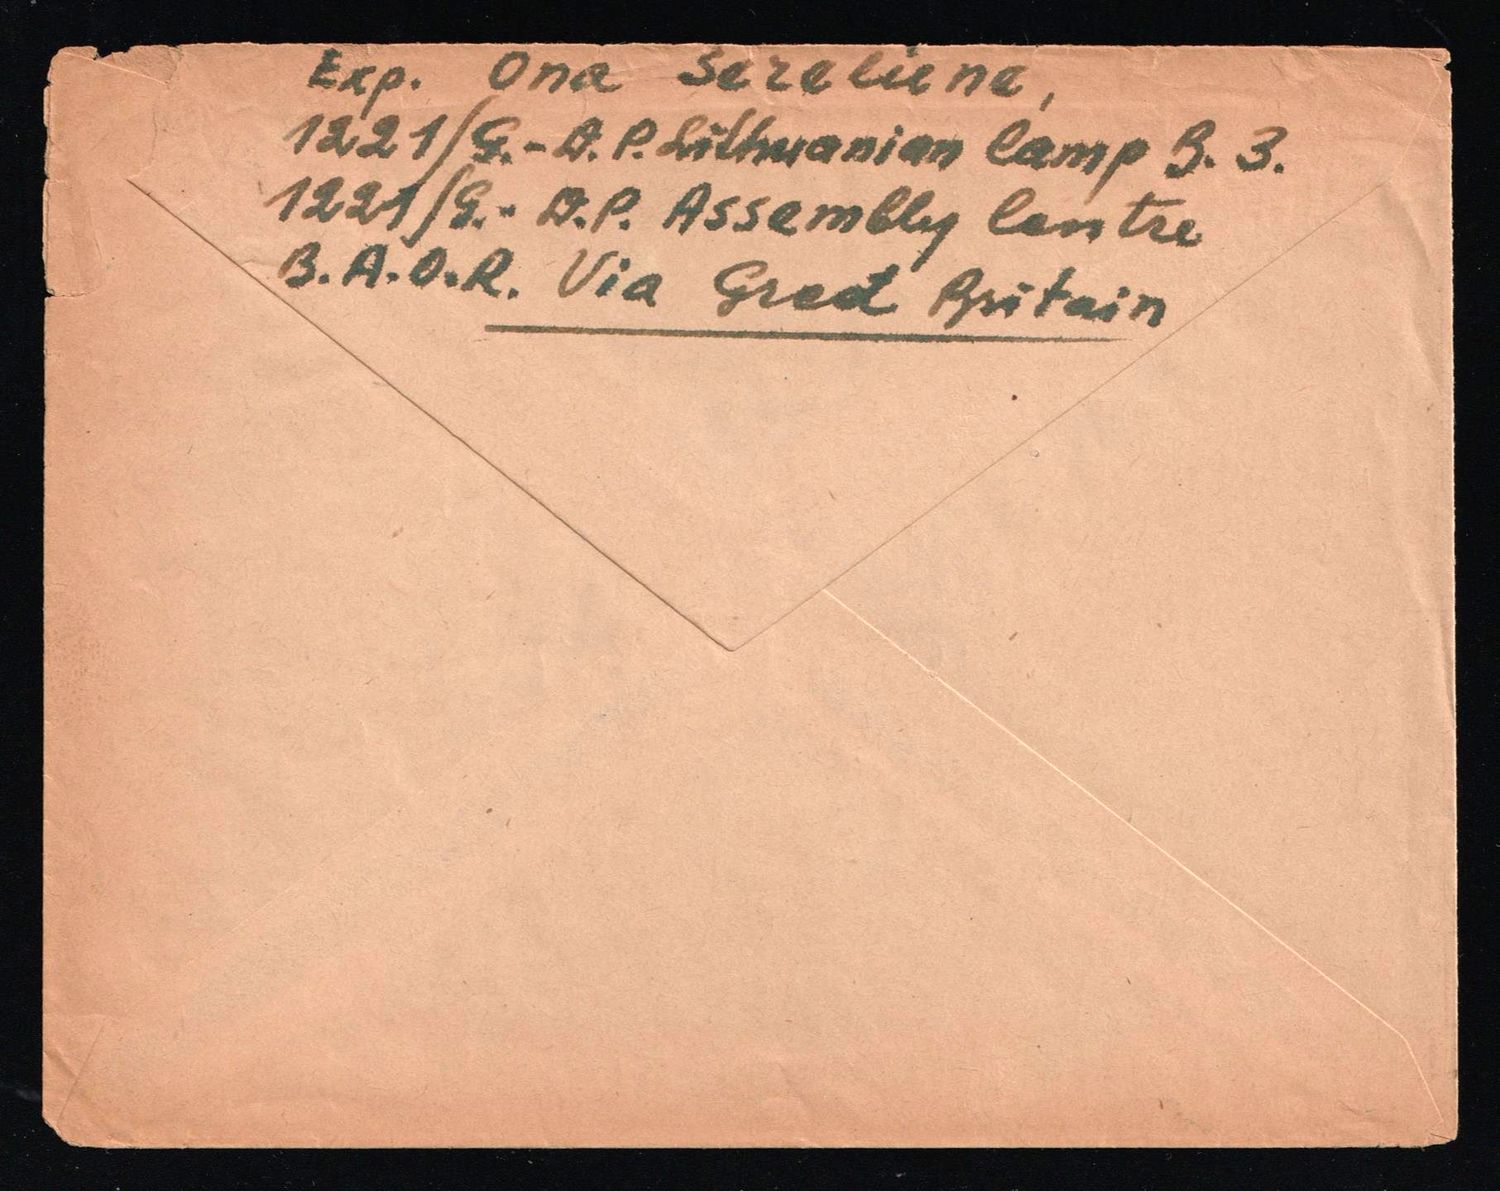 Exp. Ona Sereliene,
1221/G.-D.P. Lithuanian Camp B. 3.
1221/G.- D.P. Assembly Centre
B.A.O.R. Via Gred Britain